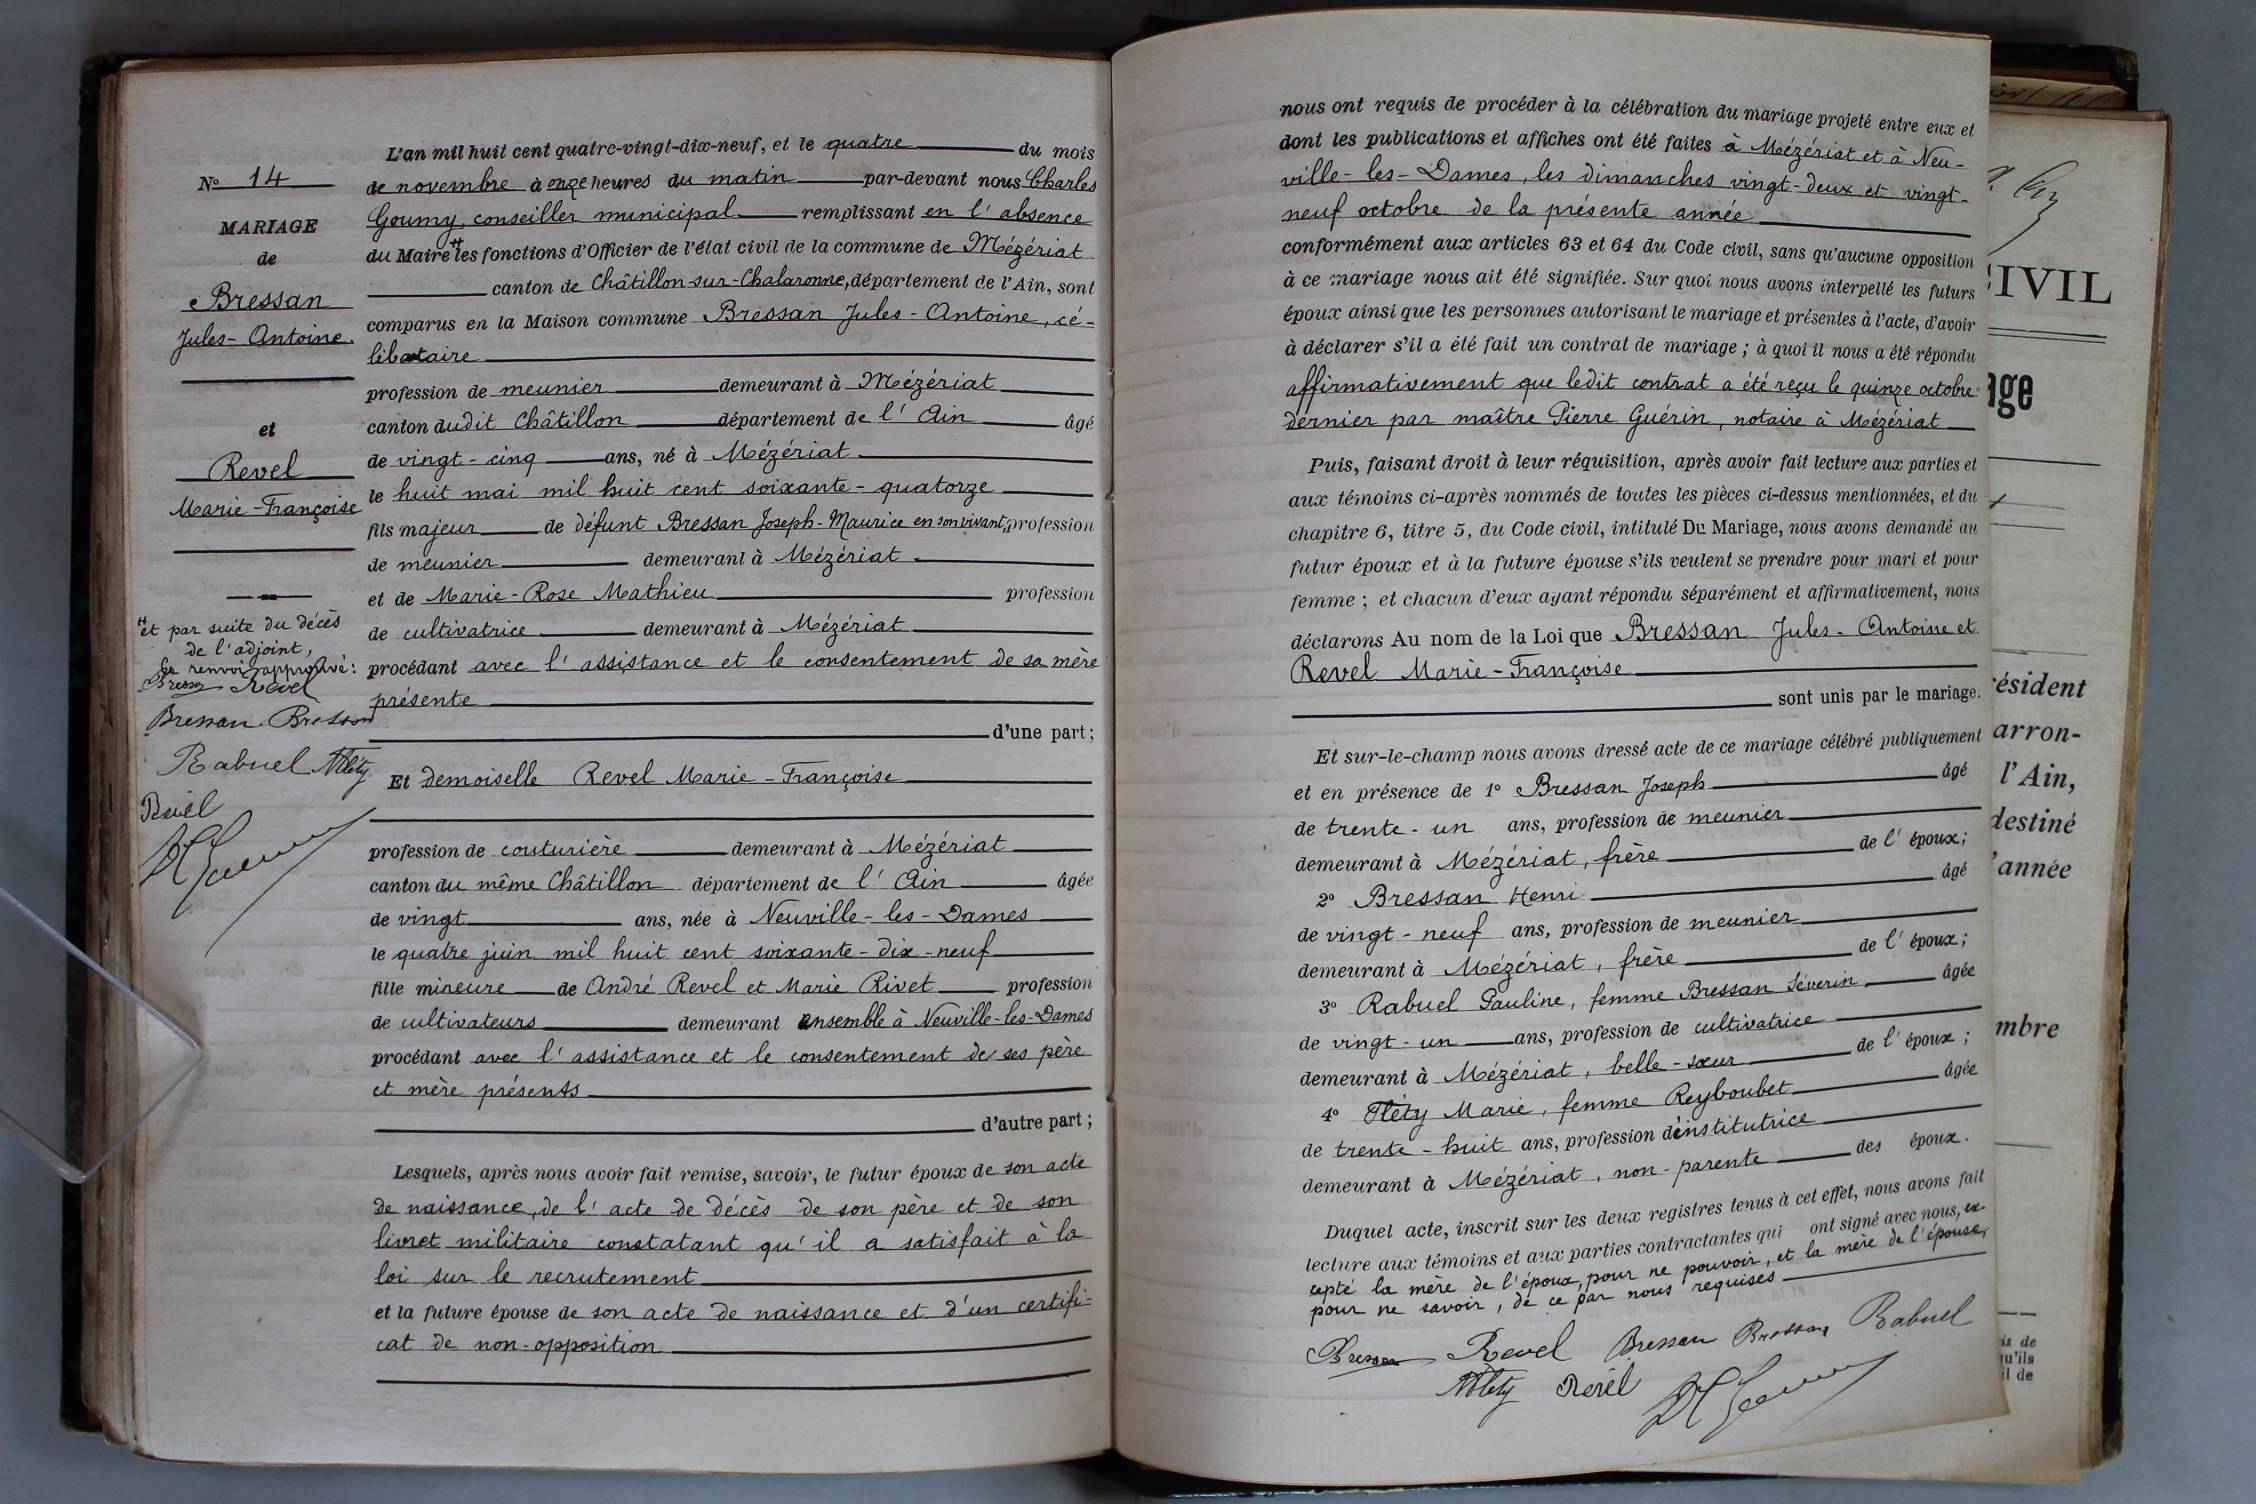 N° 14
MARIAGE
de
Bressan
Jules-Antoine.
et
Revel
Marie-Françoise
et par suite du décès
de l'adjoint,
renvoi approuvé:
Bressan Revel
Bressan Bressan
Rabuel
Revel
L'an mil huit cent quatre-vingt-dix-neuf, et le quatre du mois
de novembre à onze heures du matin par-devant nous Charles
Goumy, conseiller municipal remplissant en l'absence
du Maire les fonctions d'Officier de l'état civil de la commune de Mézériat
canton de Châtillon-sur-Chalaronne, département de l'Ain, sont
comparus en la Maison commune Bressan Jules-Antoine, cé-
libataire
profession de meunier demeurant à Mézériat
canton dudit Châtillon département de l'Ain âgé
de vingt-cinq ans, né à Mézériat
le huit mai mil huit cent soixante-quatorze
fils majeur de défunt Bressan Joseph-Maurice en son vivant, profession
de meunier demeurant à Mézériat
et de Marie-Rose Mathieu profession
de cultivatrice demeurant à Mézériat
procédant avec l'assistance et le consentement de sa mère
présente
d'une part;
Et demoiselle Revel Marie-Françoise
profession de couturière demeurant à Mézériat
canton du même Châtillon département de l'Ain âgée
de vingt ans, née à Neuville-les-Dames
le quatre juin mil huit cent soixante-dix-neuf
fille mineure de André Revel et Marie Rivet profession
de cultivateurs demeurant ensemble à Neuville-les-Dames
procédant avec l'assistance et le consentement de ses père
et mère présents
d'autre part;
Lesquels, après nous avoir fait remise, savoir, le futur époux de son acte
de naissance, de l'acte de décès de son père et de son
livret militaire constatant qu'il a satisfait à la
loi sur le recrutement
et la future épouse de son acte de naissance et d'un certifi-
cat de non-opposition
nous ont requis de procéder à la célébration du mariage projeté entre eux et
dont les publications et affiches ont été faites à Mézériat et à Neu-
ville-les-Dames, les dimanches vingt-deux et vingt-
neuf octobre de la présente année
conformément aux articles 63 et 64 du Code civil, sans qu'aucune opposition
à ce mariage nous ait été signifiée. Sur quoi nous avons interpellé les futurs
époux ainsi que les personnes autorisant le mariage et présentes à l'acte, d'avoir
à déclarer s'il a été fait un contrat de mariage; à quoi il nous a été répondu
affirmativement que ledit contrat a été reçu le quinze octobre
dernier par maître Pierre Guérin, notaire à Mézériat
Puis, faisant droit à leur réquisition, après avoir fait lecture aux parties et
aux témoins ci-après nommés de toutes les pièces ci-dessus mentionnées, et du
chapitre 6, titre 5, du Code civil, intitulé Du Mariage, nous avons demandé au
futur époux et à la future épouse s'ils veulent se prendre pour mari et pour
femme; et chacun d'eux ayant répondu séparément et affirmativement, nous
déclarons Au nom de la Loi que Bressan Jules-Antoine et
Revel Marie-Françoise
sont unis par le mariage.
Et sur-le-champ nous avons dressé acte de ce mariage célébré publiquement
et en présence de 1° Bressan Joseph âgé
de trente-un ans, profession de meunier
demeurant à Mézériat, frère de l'époux;
2° Bressan Henri âgé
de vingt-neuf ans, profession de meunier
demeurant à Mézériat, frère de l'époux;
3° Rabuel Pauline, femme Bressan Séverin âgée
de vingt-un ans, profession de cultivatrice
demeurant à Mézériat, belle-sœur de l'époux;
4° Fléty Marie, femme Reyboubet âgée
de trente-huit ans, profession d'institutrice
demeurant à Mézériat, non-parente des époux.
Duquel acte, inscrit sur les deux registres tenus à cet effet, nous avons fait
lecture aux témoins et aux parties contractantes qui ont signé avec nous, ex-
cepté la mère de l'époux, pour ne pouvoir, et la mère de l'épouse,
pour ne savoir, de ce par nous requises
Bressan Revel Bressan Bressan Rabuel
Revel
CIVIL
age
résident
arron-
l'Ain,
destiné
l'année
mbre
is de
qu'ils
il de